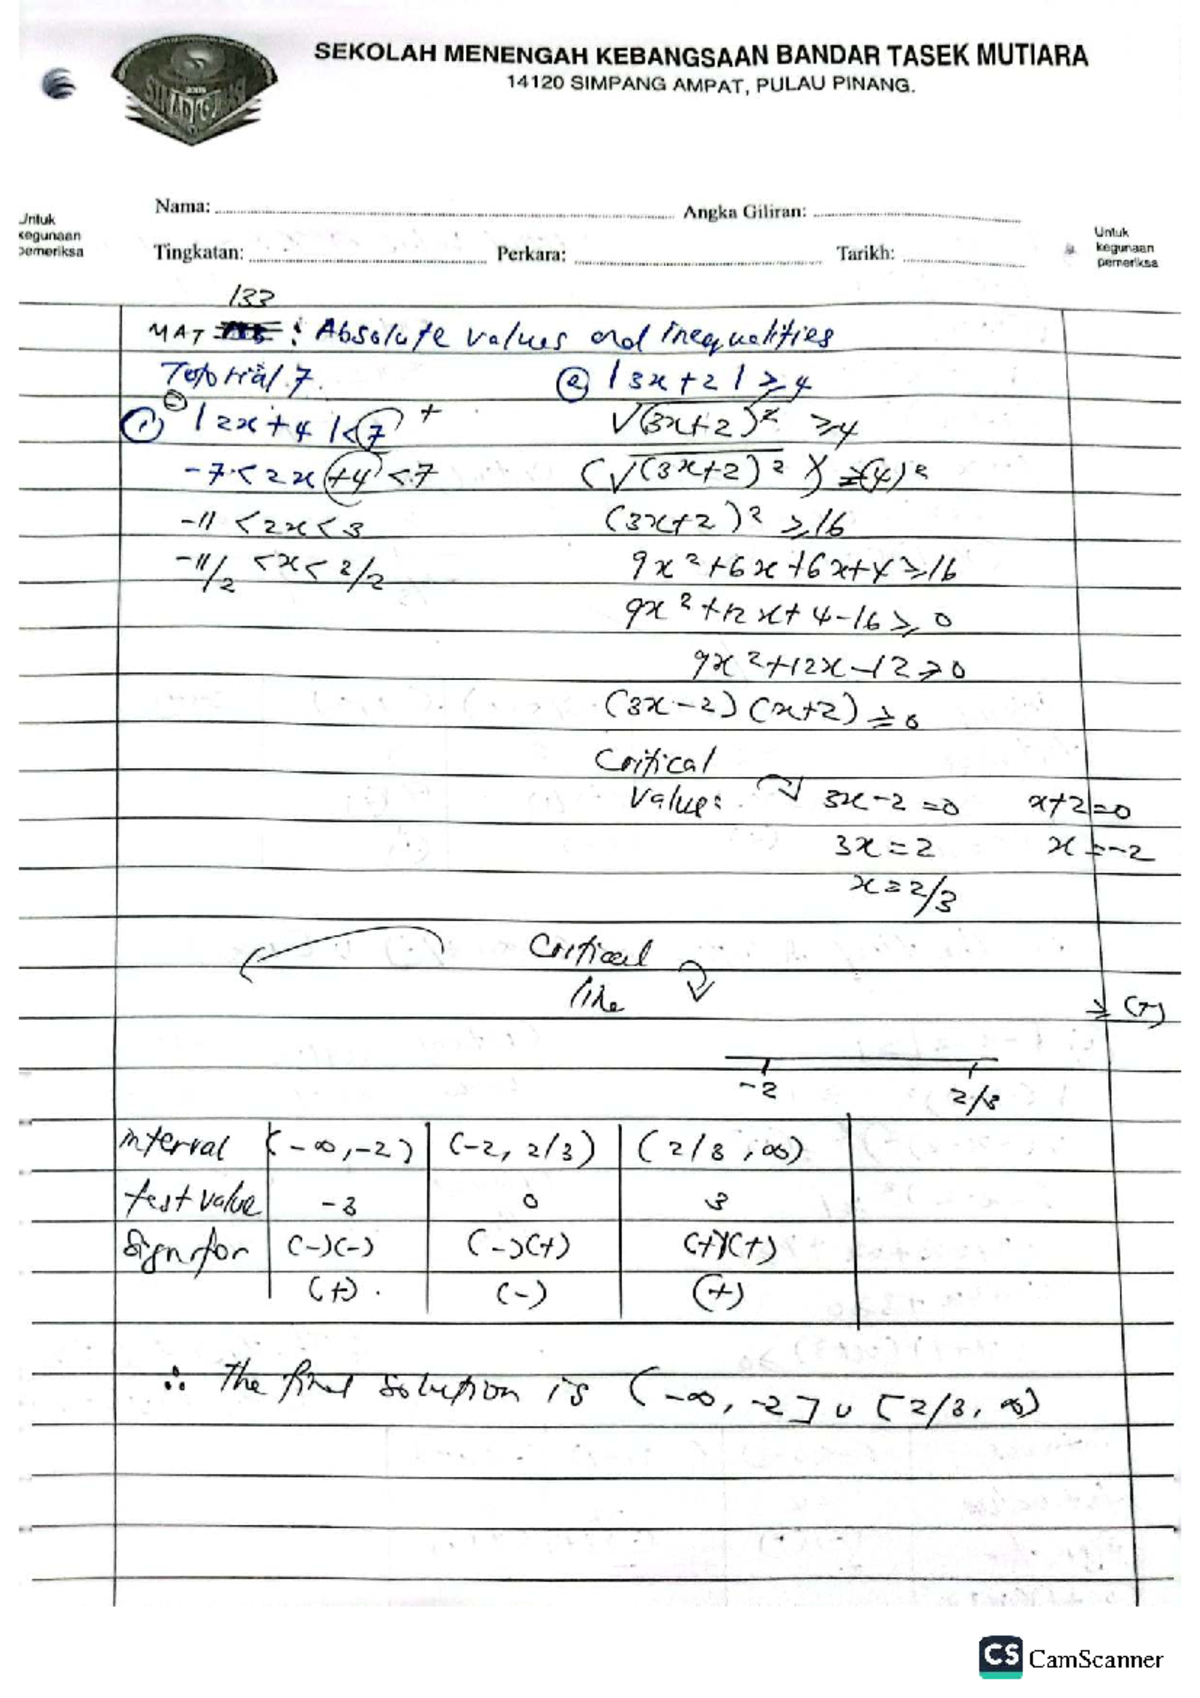 SEKOLAH MENENGAH KEBANGSAAN BANDAR TASEK MUTIARA
14120 SIMPANG AMPAT, PULAU PINANG.
Nama: Angka Giliran:
Untuk kegunaan pemeriksa
Tingkatan: Perkara: Tarikh:
Untuk kegunaan pemeriksa
133
MAT : Absolute values and inequalities
Tutorial 7.
① |2x+4|<7 +
-7<2x+4<7
-11<2x<3
-11/2<x<3/2
② |3x+2|≥4
√(3x+2)² ≥4
(√(3x+2)²) ≥(4)²
(3x+2)² ≥16
9x²+6x+6x+4≥16
9x²+12x+4-16≥0
9x²+12x-12≥0
(3x-2)(x+2)≥0
Critical
value: 3x-2=0 x+2=0
3x=2 x=-2
x=2/3
Critical
line
≥ (+)
-2 2/3
interval (-∞,-2) (-2, 2/3) (2/3,∞)
test value -3 0 3
Sign for (-)(-) (-)(+) (+)(+)
(+) (-) (+)
∴ The final solution is (-∞, -2] ∪ [2/3, ∞)
CS CamScanner